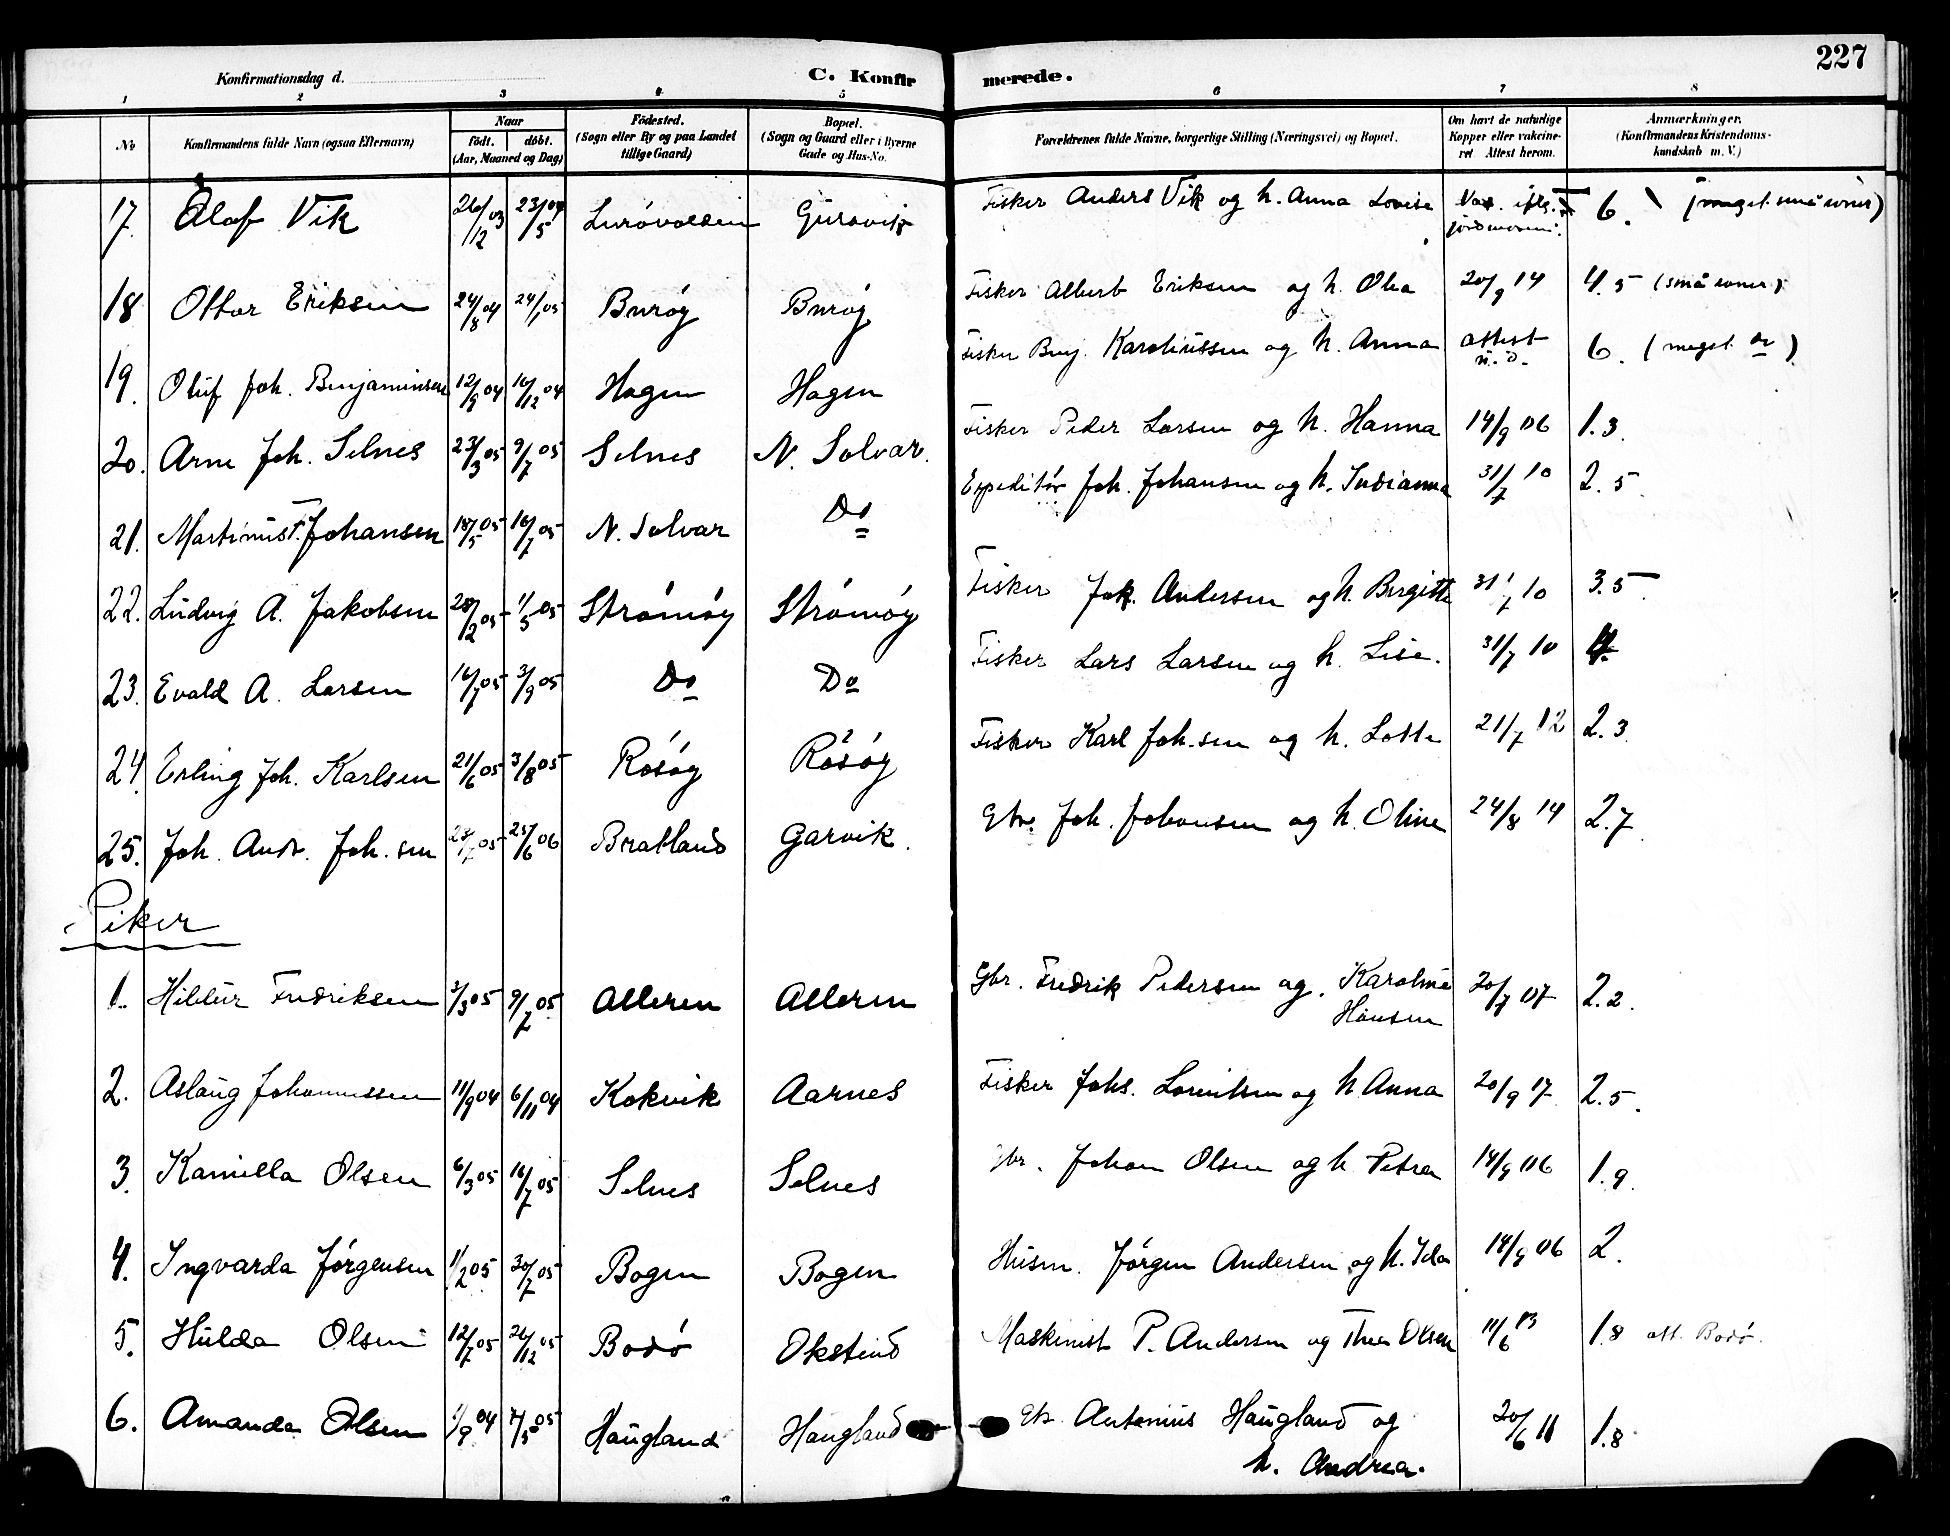 227
Konfirmationsdag d. C. Konfirmerede.
1 2 3 4 5 6 7 8
No Konfirmandens fulde Navn (ogsaa Efternavn) Naar født. døbt. (Aar, Maaned og Dag) Fødested. (Sogn eller By og paa Landet tillige Gaard) Bopæl. (Sogn og Gaard eller i Byerne Gade og Hus-No. Forældrenes fulde Navne, borgerlige Stilling (Næringsvei) og Bopæl. Om havt de naturlige Kopper eller vakcineret. Attest herom. Anmærkninger. (Konfirmandens Kristendomskundskab m. V.)
17. Olaf Vik 26/12 03 23/5 04 Lurøvolden Gursvik Fisker Anders Vik og h. Anna Lovise 6. (meget små evner)
18. Ottar Eriksen 24/8 04 24/1 05 Burøy Burøy Fisker Albert Eriksen og h. Olea 20/9 14 4.5 (små evner)
19. Oluf Joh. Benjaminsen 12/9 04 16/12 04 Hagen Hagen Fisker Benj. Karoliussen og h. Anna attest n.d. 6. (meget do)
20. Arne Joh. Selnes 23/3 05 9/7 05 Selnes N. Solvær. Fisker Peder Larsen og h. Hanna 14/9 06 1.3
21. Martinus F. Johansen 18/5 05 16/7 05 N. Solvær Do Expeditør Joh. Johansen og h. Indianna 31/7 10 2.5
22. Ludvig A. Jakobsen 28/2 05 1/5 05 Strømøy Strømøy Fisker Jak. Andersen og h. Bergitte 31/7 10 3.5
23. Evald A. Larsen 16/7 05 3/9 05 Do Do Fisker Lars Larsen og h. Lise. 31/7 10 4.
24. Erling Joh. Karlsen 21/6 05 3/8 05 Røsøy Røsøy Fisker Karl Joh.sen og h. Lotte 21/7 12 2.3
25. Joh. Andr. Joh.sen 25/6 06 Bratland Garvik. Joh. Johansen og h. Oline 24/8 14 2.7
Piker
1. Hildur Fredriksen 3/3 05 9/7 05 Alleren Alleren Gbr. Fredrik Pedersen og Karoline Hansen 20/7 07 2.2.
2. Aslaug Johannessen 11/9 04 6/11 04 Kokvik Aarnes Fisker Johs. Lorentsen og h. Anna 20/9 17 2.5.
3. Kamilla Olsen 6/3 05 16/7 05 Selnes Selnes Gbr. Johan Olsen og h. Petra 14/9 06 1.9.
4. Ingvarda Jørgensen 1/2 05 30/7 05 Bogen Bogen Husm. Jørgen Andersen og h. Ida 14/9 06 2.
5. Hulda Olsen 12/7 05 26/12 05 Bodø Okstind Maskinist P. Andersen og Thea Olsen 11/6 13 1.8 att. Bodø.
6. Amanda Olsen 1/9 04 7/5 05 Haugland Haugland Antonius Haugland og h. Andrea. 20/6 11 1.8